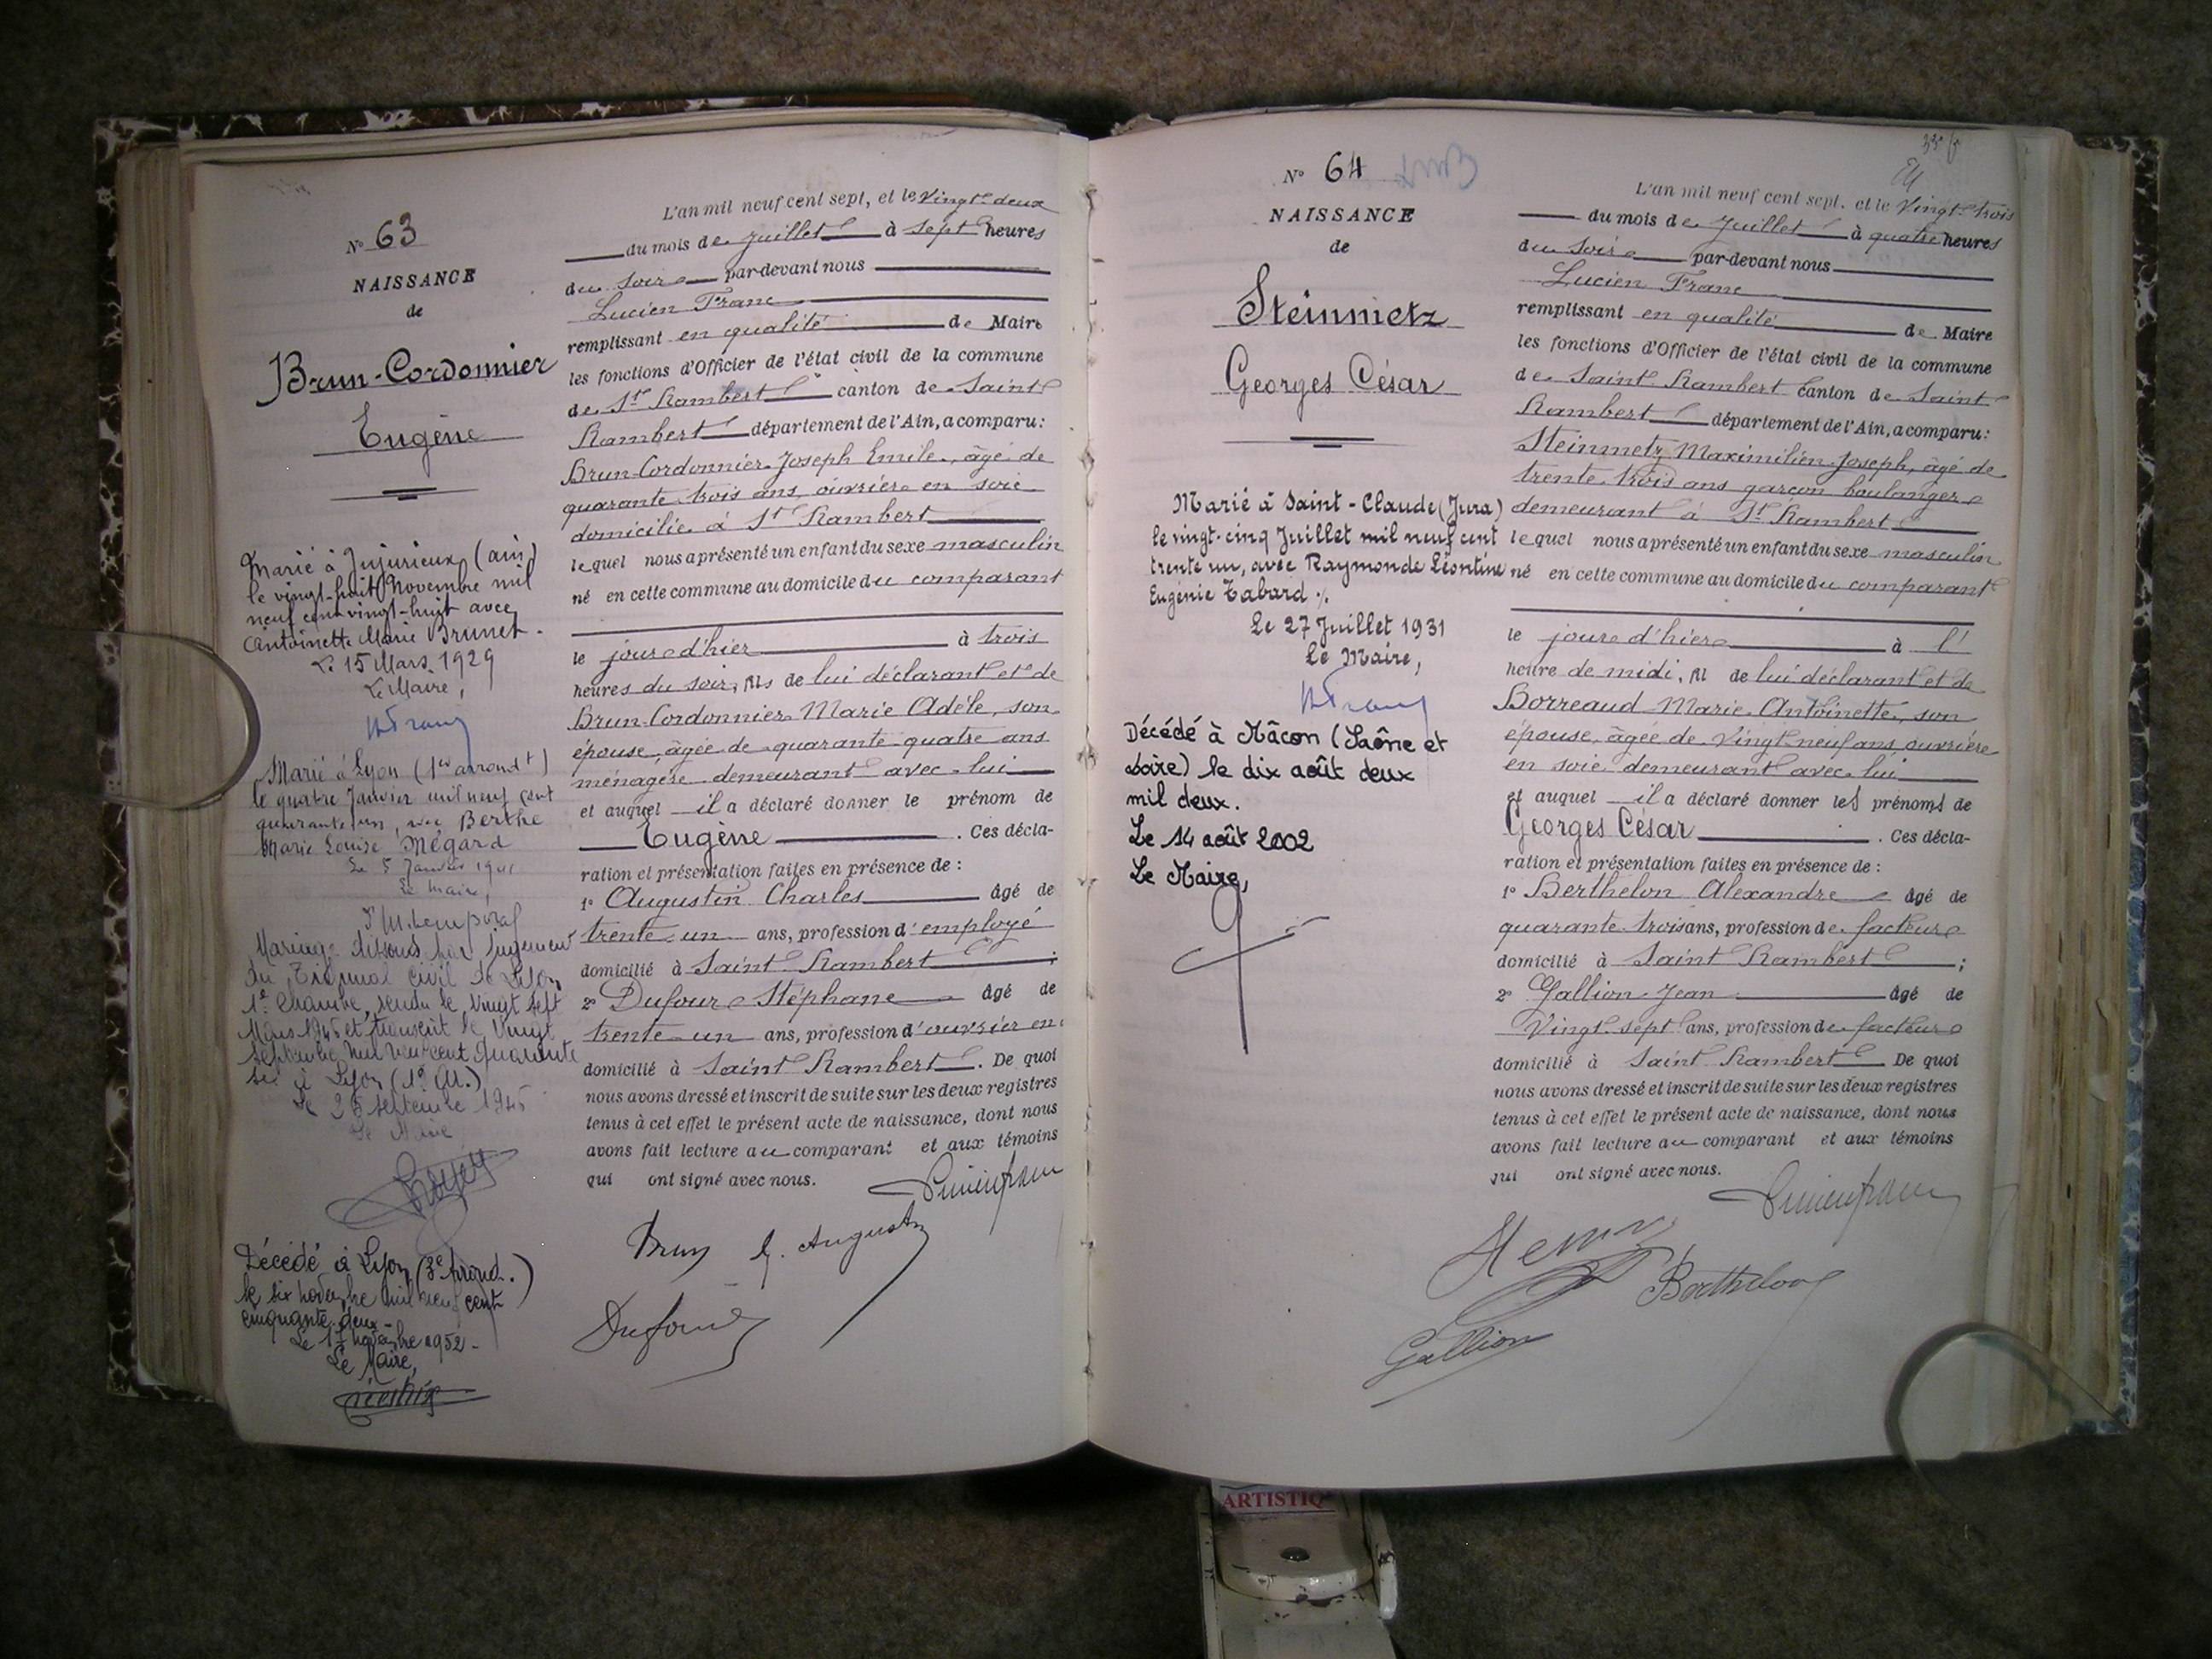 N° 63
NAISSANCE
de
Brun-Cordonnier
Eugène
Marié à Jujurieux (ain)
le vingt-huit Novembre mil
neuf cent vingt-huit avec
Antoinette Marie Brunet.
Le 15 Mars 1929
Le Maire,
Marié à Lyon (1er arrondt)
le quatre Janvier mil neuf cent
quarante un, avec Berthe
Marie Louise Mégard
Le 5 Janvier 1941
Le Maire,
Mariage dissous par jugement
du Tribunal Civil de Lyon
1e Chambre, rendu le vingt sept
Mars 1946 et transcrit le vingt
septembre mil neuf cent quarante
à Lyon (1e A.)
Le septembre
Le Maire
Décédé à Lyon (3e Arrond.)
le six novembre mil neuf cent
cinquante deux -
Le 17 novembre 1952 -
Le Maire,
L'an mil neuf cent sept, et le Vingt-deux
du mois de Juillet à sept heures
du soir par-devant nous
Lucien Franc
remplissant en qualité de Maire
les fonctions d'Officier de l'état civil de la commune
de St Rambert canton de Saint
Rambert département de l'Ain, a comparu:
Brun-Cordonnier Joseph Emile, âgé de
quarante-trois ans, ouvrier en soie
domicilié à St Rambert
lequel nous a présenté un enfant du sexe masculin
né en cette commune au domicile du comparant
le jour d'hier à trois
heures du soir, fils de lui déclarant et de
Brun-Cordonnier Marie Adèle, son
épouse, âgée de quarante-quatre ans
ménagère demeurant avec lui
et auquel il a déclaré donner le prénom de
Eugène . Ces décla-
ration et présentation faites en présence de :
1° Augustin Charles âgé de
trente-un ans, profession d'employé
domicilié à Saint Rambert ;
2° Dufour Stéphane âgé de
trente-un ans, profession d'ouvrier en
domicilié à Saint Rambert . De quoi
nous avons dressé et inscrit de suite sur les deux registres
tenus à cet effet le présent acte de naissance, dont nous
avons fait lecture au comparant et aux témoins
qui ont signé avec nous.
Lucien Franc
Brun C. Augustin
Dufour
N° 64
NAISSANCE
de
Steinmetz
Georges César
Marié à Saint-Claude (Jura)
le vingt-cinq Juillet mil neuf cent
trente un, avec Raymonde Léontine
Eugénie Tabard ./.
Le 27 Juillet 1931
Le Maire,
Décédé à Mâcon (Saône et
Loire) le dix août deux
mil deux.
Le 14 août 2002
Le Maire,
L'an mil neuf cent sept, et le Vingt-trois
du mois de Juillet à quatre heures
du soir par-devant nous
Lucien Franc
remplissant en qualité de Maire
les fonctions d'Officier de l'état civil de la commune
de Saint Rambert canton de Saint
Rambert département de l'Ain, a comparu:
Steinmetz Maximilien-Joseph, âgé de
trente-trois ans garçon boulanger
demeurant à St Rambert
lequel nous a présenté un enfant du sexe masculin
né en cette commune au domicile du comparant
le jour d'hier à l'
heure de midi, fil de lui déclarant et de
Borreaud Marie Antoinette, son
épouse, âgée de Vingt-neuf ans, ouvrière
en soie demeurant avec lui
et auquel il a déclaré donner les prénoms de
Georges César . Ces décla-
ration et présentation faites en présence de :
1° Berthelon Alexandre âgé de
quarante-trois ans, profession de facteur
domicilié à Saint Rambert ;
2° Gallion Jean âgé de
Vingt-sept ans, profession de facteur
domicilié à Saint Rambert De quoi
nous avons dressé et inscrit de suite sur les deux registres
tenus à cet effet le présent acte de naissance, dont nous
avons fait lecture au comparant et aux témoins
qui ont signé avec nous.
Lucien Franc
Berthelon
Gallion
ARTISTIQ